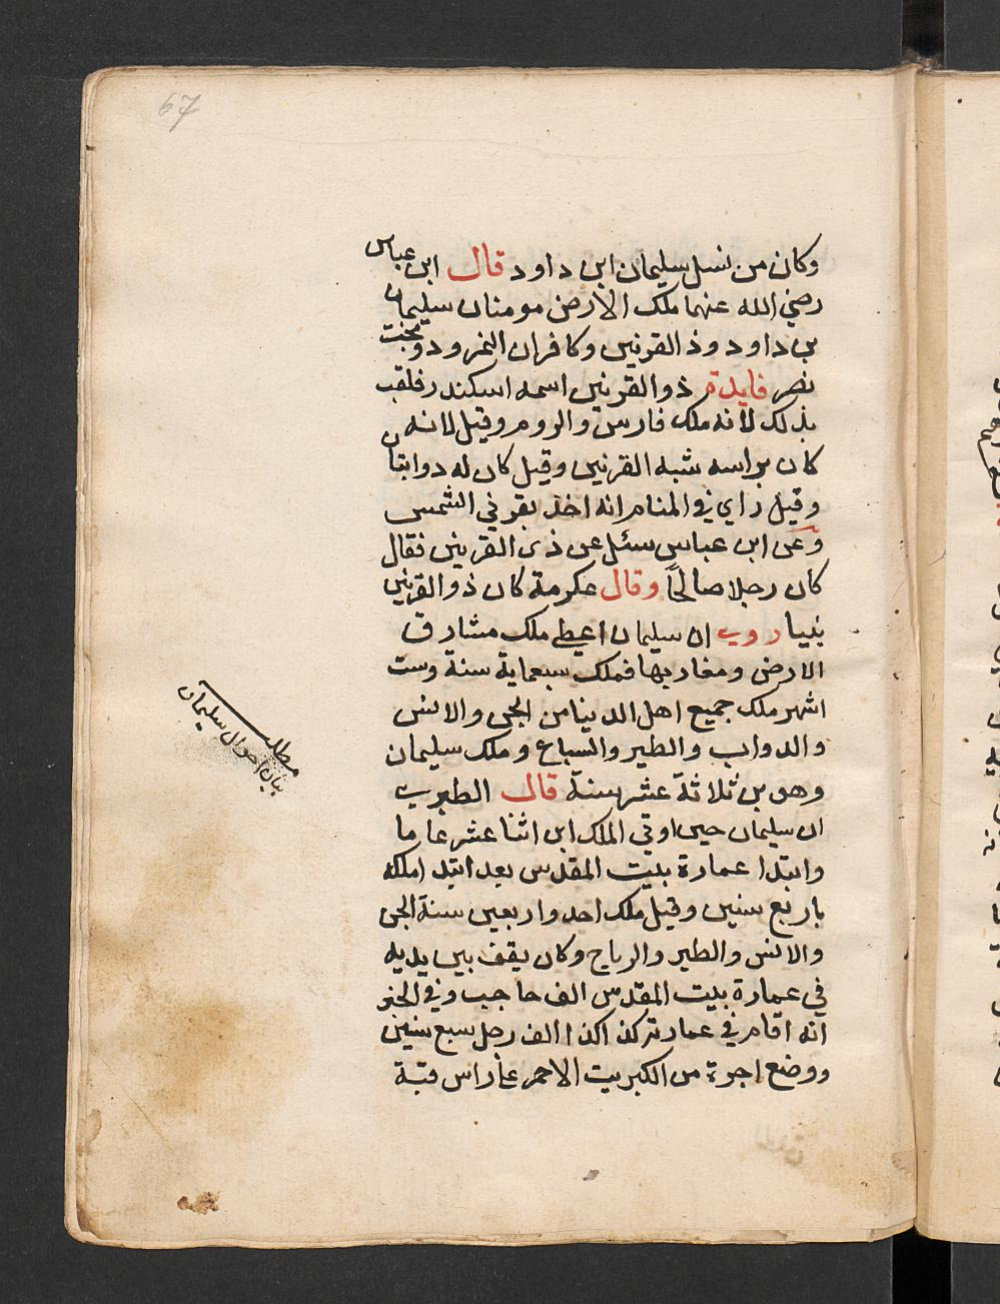 67
وكان من نسل سليمان ابن داود قال ابن عباس
رضي الله عنهما ملك الارض مومنان سليمان
بن داود وذ القرنين وكافران النمرود وبخت
نصر فايدة ذو القرنين اسمه اسكندر فلقب
بذلك لانه ملك فارس والروم وقيل لانه
كان براسه شبه القرنين وقيل كان له دوابتان
وقيل راي في المنام انه اخذ بقرني الشمس
وعن ابن عباس سئل عن ذى القرينن فقال
كان رجلا صالحاً وقال عكرمة كان ذو القرنين
نبيا روي ان سليمان اعطي ملك مشارق
الارض ومغاربها فملك سبعماية سنة وست
اشهر ملك جميع اهل الدينا من الجن والانس
والدواب والطير والسباع وملك سليمان
وهو بن ثلاثة عشر سنة قال الطبري
ان سليمان حين اوتي الملك ابن اثنا عشر عاما
وابتدا عمارة بيت المقدس بعد ابتدا ملكه
باربع سنين وقيل ملك احد واربعين سنة الجن
والانس والطير والرياح وكان يقف بين يديه
في عمارة بيت المقدس الف حاجب وفي الخبر
انه اقام في عمارته كذا كذا الف رجل سبع سنين
ووضع اجرة من الكبريت الاحمر علي راس قبة
مطلب
بيان احوال سليمان